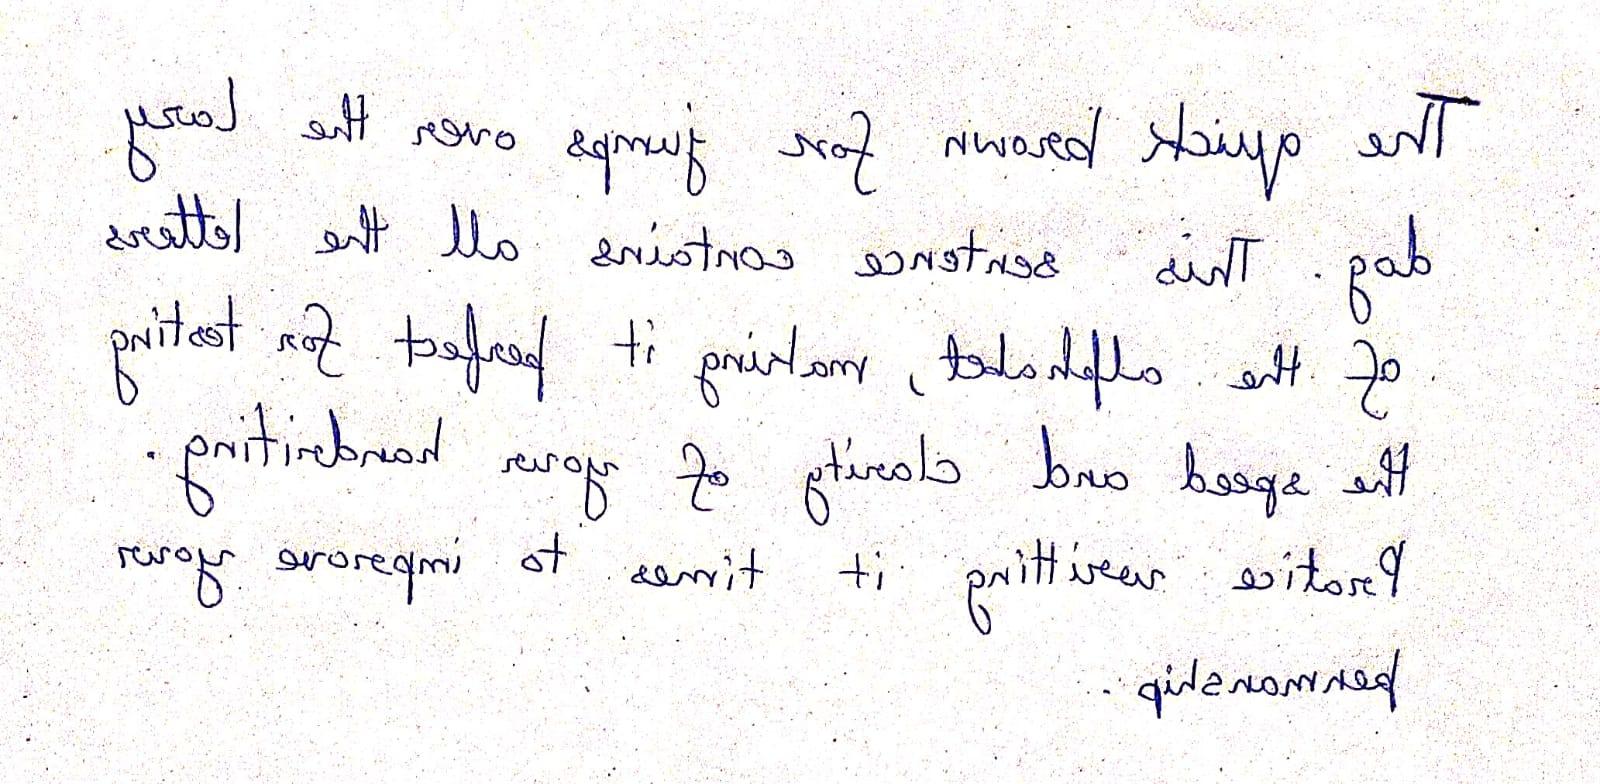 The quick brown fox jumps over the lazy
dog. This sentence contains all the letters
of the alphabet, making it perfect for testing
the speed and clarity of your handwriting.
Practice writting it times to improve your
penmanship.